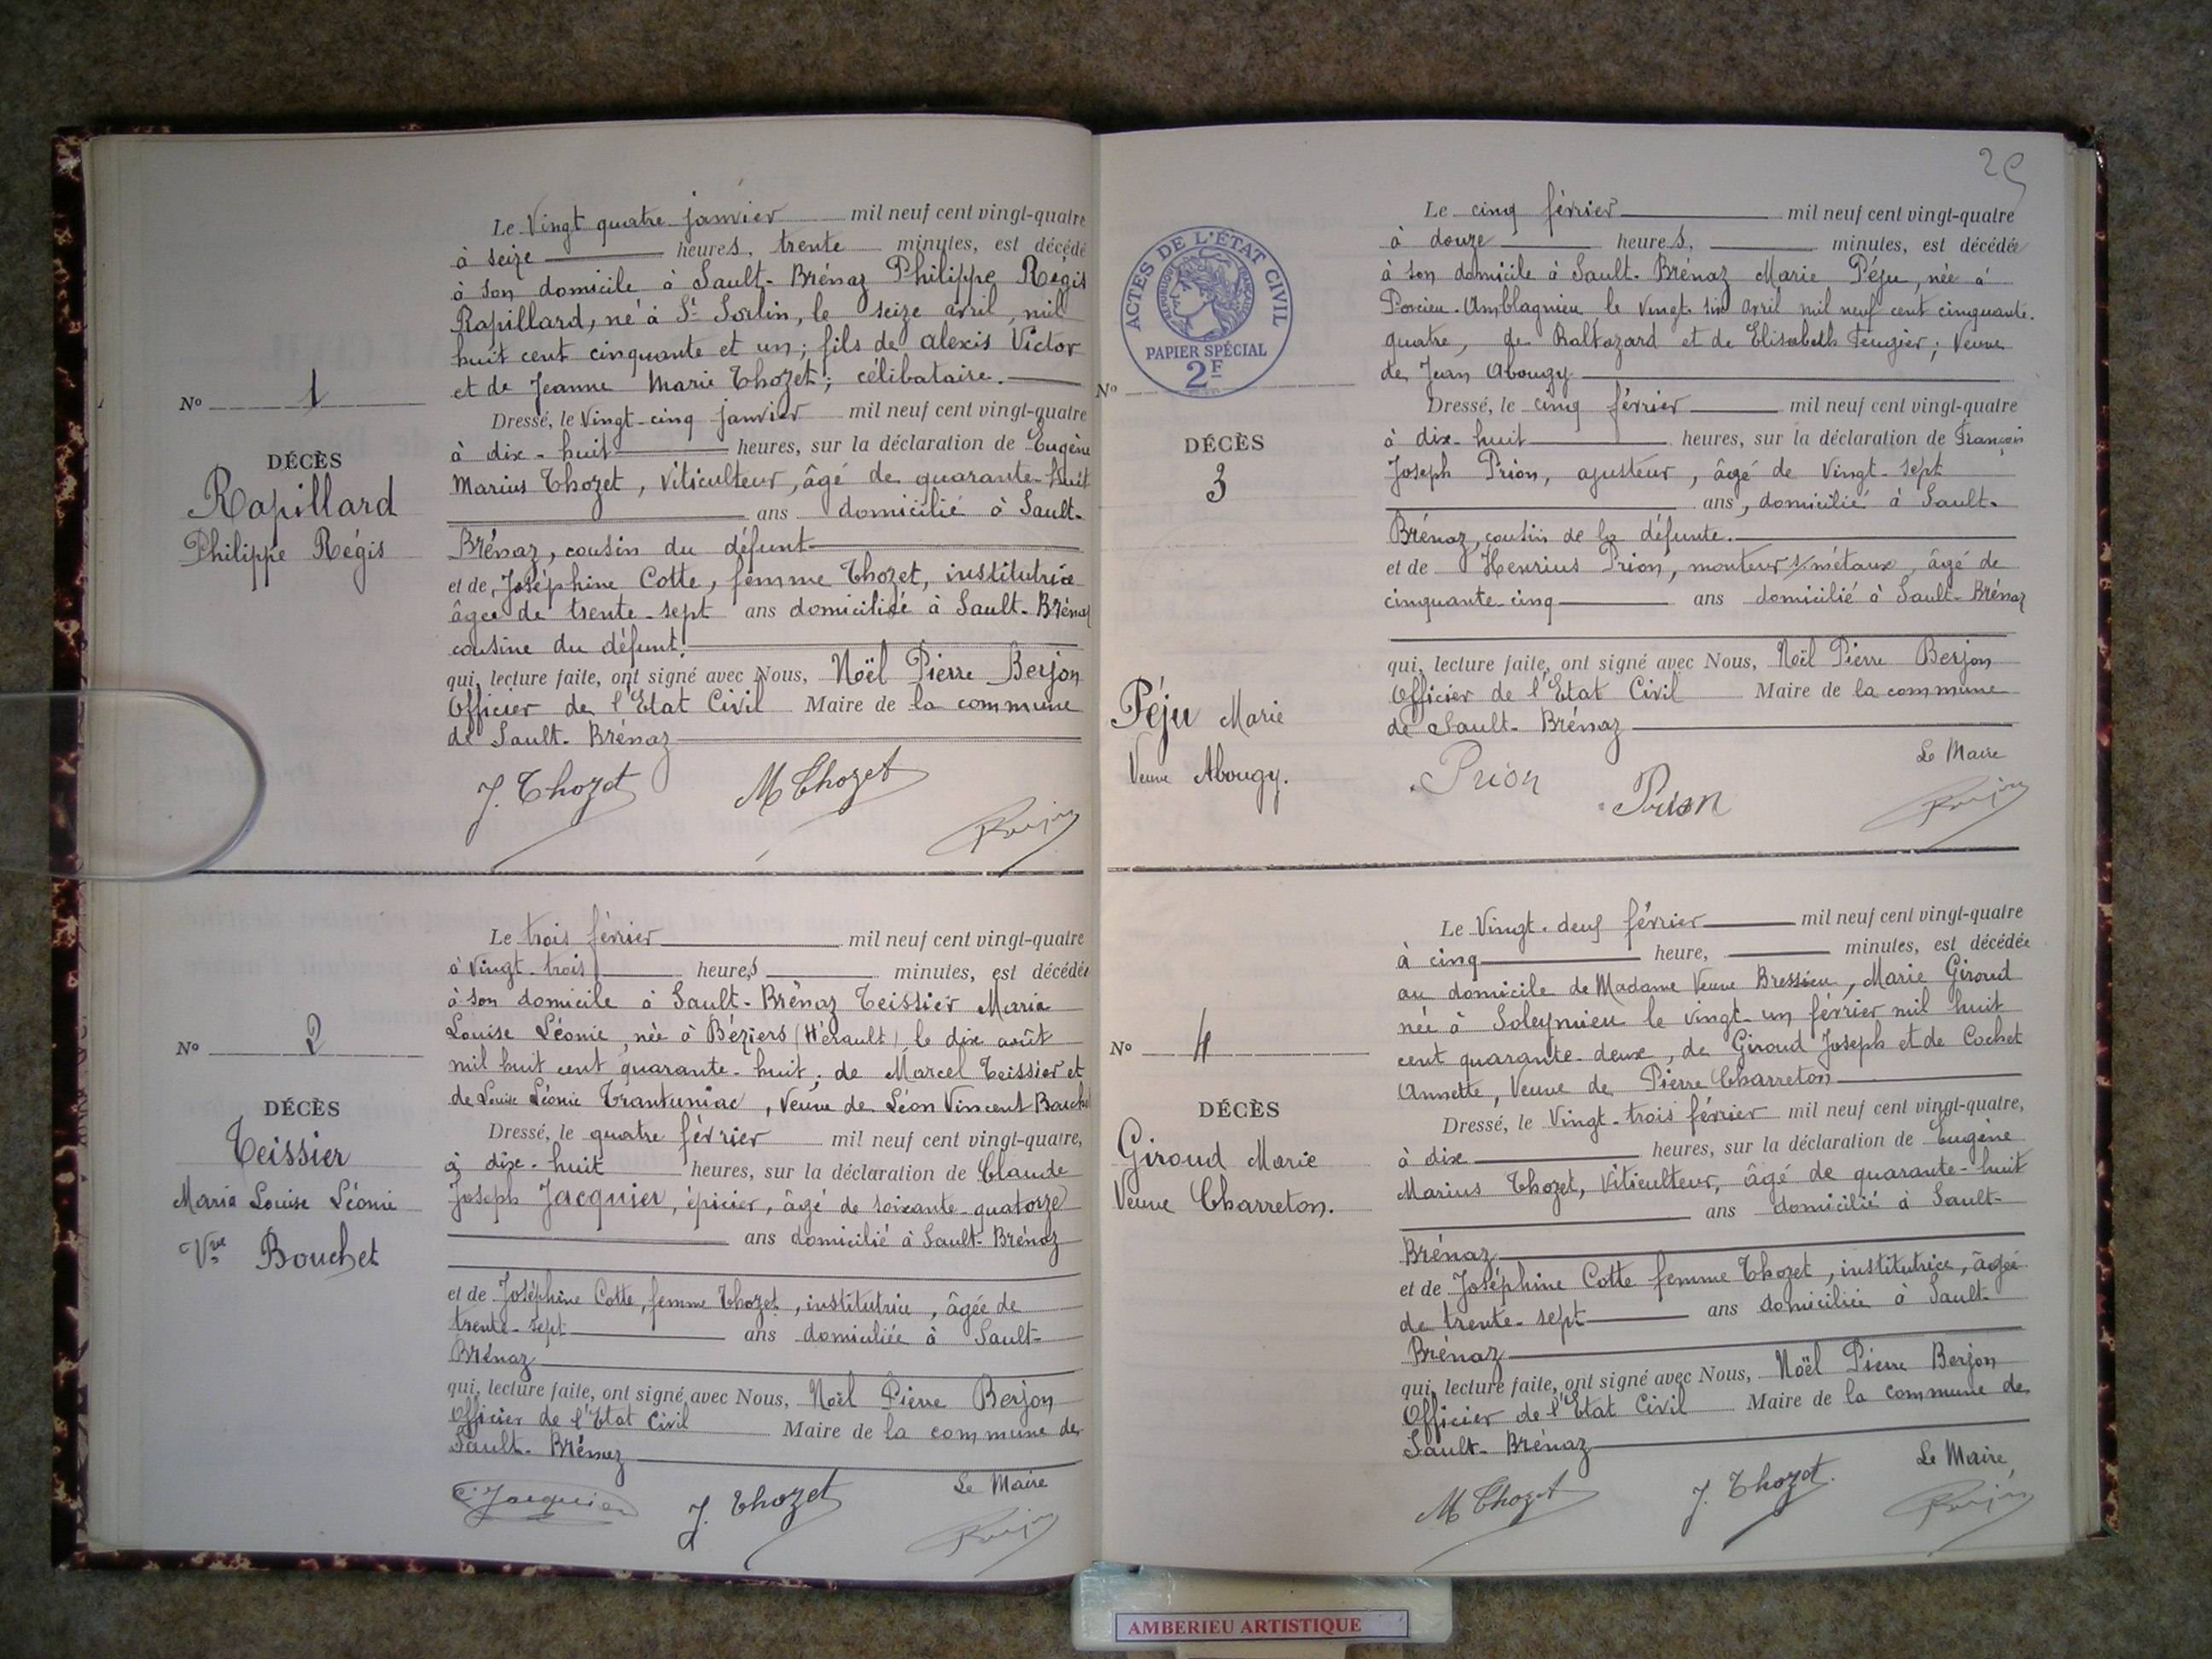 Le Vingt quatre janvier mil neuf cent vingt-quatre
à seize heures, trente minutes, est décédé
à son domicile à Sault-Brénaz Philippe Régis
Rapillard, né à St Sorlin, le seize avril, mil
huit cent cinquante et un; fils de Alexis Victor
et de Jeanne Marie Thozet; célibataire.
No 1
Dressé, le Vingt-cinq janvier mil neuf cent vingt-quatre
à dix-huit heures, sur la déclaration de Eugène
DÉCÈS
Rapillard
Philippe Régis
Marius Thozet, Viticulteur, âgé de quarante-huit
ans domicilié à Sault-
Brénaz, cousin du défunt
et de Joséphine Cotte, femme Thozet, institutrice
âgée de trente-sept ans domiciliée à Sault-Brénaz
cousine du défunt.
qui, lecture faite, ont signé avec Nous, Noël Pierre Berjon
Officier de l'Etat Civil Maire de la commune
de Sault-Brénaz
J. Thozet M Thozet Berjon
Le trois février mil neuf cent vingt-quatre
à Vingt-trois heures minutes, est décédée
à son domicile à Sault-Brénaz Teissier Maria
Louise Léonie, née à Béziers (Hérault) le dix août
mil huit cent quarante-huit, de Marcel Teissier et
de Louise Léonie Trantuniac, Veuve de Léon Vincent Bouchet
No 2
DÉCÈS
Teissier
Maria Louise Léonie
Vve Bouchet
Dressé, le quatre février mil neuf cent vingt-quatre,
à dix-huit heures, sur la déclaration de Claude
Joseph Jacquier, épicier, âgé de soixante-quatorze
ans domicilié à Sault-Brénaz
et de Joséphine Cotte, femme Thozet, institutrice, âgée de
trente-sept ans domiciliée à Sault-
Brénaz
qui, lecture faite, ont signé avec Nous, Noël Pierre Berjon
Officier de l'Etat Civil Maire de la commune de
Sault-Brénaz
C. Jacquier J. Thozet Le Maire
Berjon
25
ACTES DE L'ÉTAT CIVIL
RÉPUBLIQUE FRANÇAISE
PAPIER SPÉCIAL
2F
Le cinq février mil neuf cent vingt-quatre
à douze heures, minutes, est décédée
à son domicile à Sault-Brénaz Marie Péju, née à
Porcieu-Amblagnieu le Vingt-six avril mil neuf cent cinquante-
quatre, de Baltazard et de Elisabeth Feugier; Veuve
de Jean Abougy
No
DÉCÈS
3
Péju Marie
Veuve Abougy.
Dressé, le cinq février mil neuf cent vingt-quatre
à dix-huit heures, sur la déclaration de François
Joseph Prion, ajusteur, âgé de vingt-sept
ans, domicilié à Sault-
Brénaz, cousin de la défunte.
et de Henrius Prion, monteur s/métaux, âgé de
cinquante-cinq ans domicilié à Sault-Brénaz
qui, lecture faite, ont signé avec Nous, Noël Pierre Berjon
Officier de l'Etat Civil Maire de la commune
de Sault-Brénaz
Prion Prion Le Maire
Berjon
Le Vingt-deux février mil neuf cent vingt-quatre
à cinq heure, minutes, est décédée
au domicile de Madame Veuve Bressieu, Marie Giroud
née à Soleymieu le vingt-un février mil huit
cent quarante-deux, de Giroud Joseph et de Cochet
Annette, Veuve de Pierre Charreton
No 4
DÉCÈS
Giroud Marie
Veuve Charreton.
Dressé, le Vingt-trois février mil neuf cent vingt-quatre,
à dix heures, sur la déclaration de Eugène
Marius Thozet, Viticulteur, âgé de quarante-huit
ans domicilié à Sault-
Brénaz
et de Joséphine Cotte femme Thozet, institutrice, âgée
de trente-sept ans domiciliée à Sault-
Brénaz
qui, lecture faite, ont signé avec Nous, Noël Pierre Berjon
Officier de l'Etat Civil Maire de la commune de
Sault-Brénaz
M Thozet J. Thozet. Le Maire
Berjon
AMBERIEU ARTISTIQUE